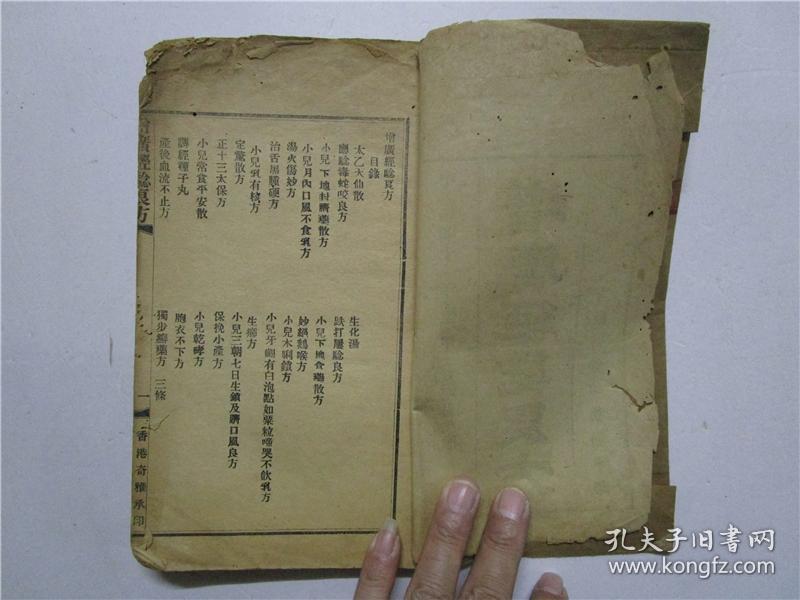 增廣經驗良方
目錄
太乙大仙散
應驗毒蛇咬良方
小兒下地封臍藥散方
小兒月內口風不食乳方
湯火傷妙方
治舌黑腫硬方
小兒乳有核方
定驚散方
正十三太保方
小兒常食平安散
調經種子丸
產後血流不止方
生化湯
跌打屢驗良方
小兒下地食藥散方
妙鍋鵝喉方
小兒木唎鎖方
小兒牙齦有白泡點如粟粒啼哭不飲乳方
生癤方
小兒三朝七日生鎖及臍口風良方
保挽小產方
小兒乾哮方
胞衣不下方
獨步癬藥方 三條
增廣經驗良方
一
香港奇雅承印
孔夫子旧书网
www.kongfz.com